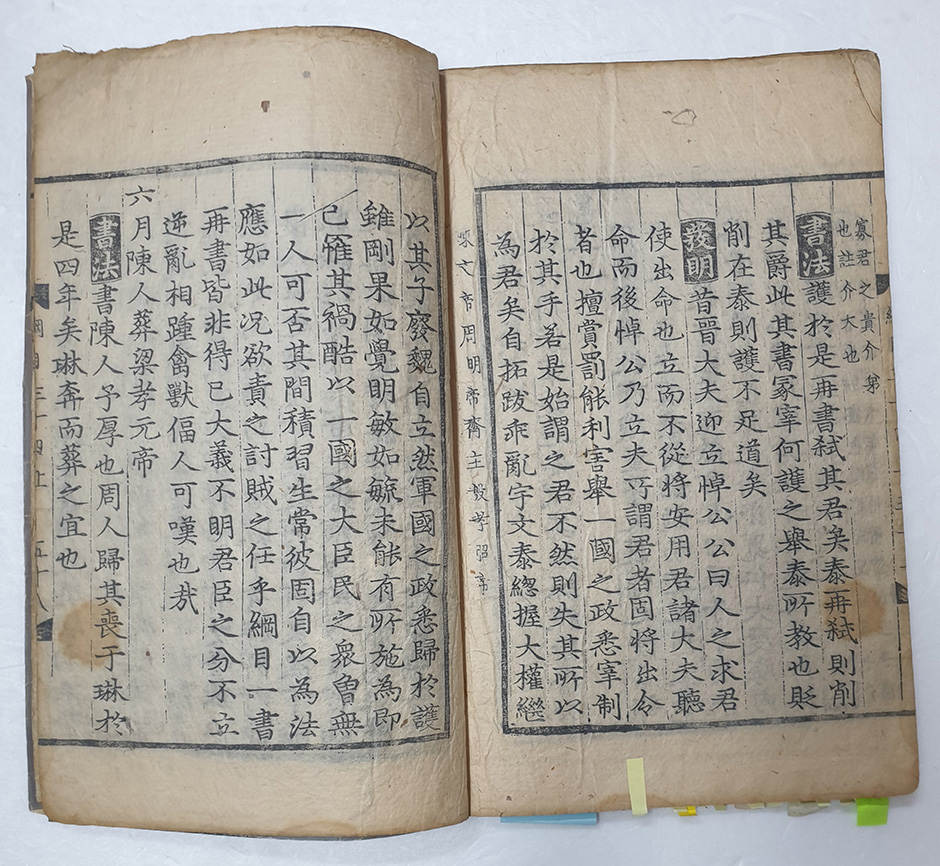 寡君之貴介弟
也註介大也
書法護於是再書弑其君矣泰再弑則削
其爵此其書冢宰何護之舉泰所教也貶
削在泰則護不足道矣
發明昔晉大夫迎立悼公公曰人之求君
使出命也立而不從將安用君諸大夫聽
命而後悼公乃立夫所謂君者固將出令
者也擅賞罰能利害舉一國之政悉宰制
於其手若是始謂之君不然則失其所以
為君矣自拓跋乖亂宇文泰總握大權繼
帝周明帝齊主殷
以其子廢魏自立然軍國之政悉歸於護
雖剛果如覺明敏如毓未能有所施為即
已罹其禍酷以一國之大臣民之衆曾無
一人可否其間積習生常彼固自以為法
應如此况欲責之討賊之任乎綱目一書
再書皆非得已大義不明君臣之分不立
逆亂相踵禽獸偪人可嘆也哉
六月陳人葬梁孝元帝
書法書陳人予厚也周人歸其喪于琳於
是四年矣琳奔而葬之宜也